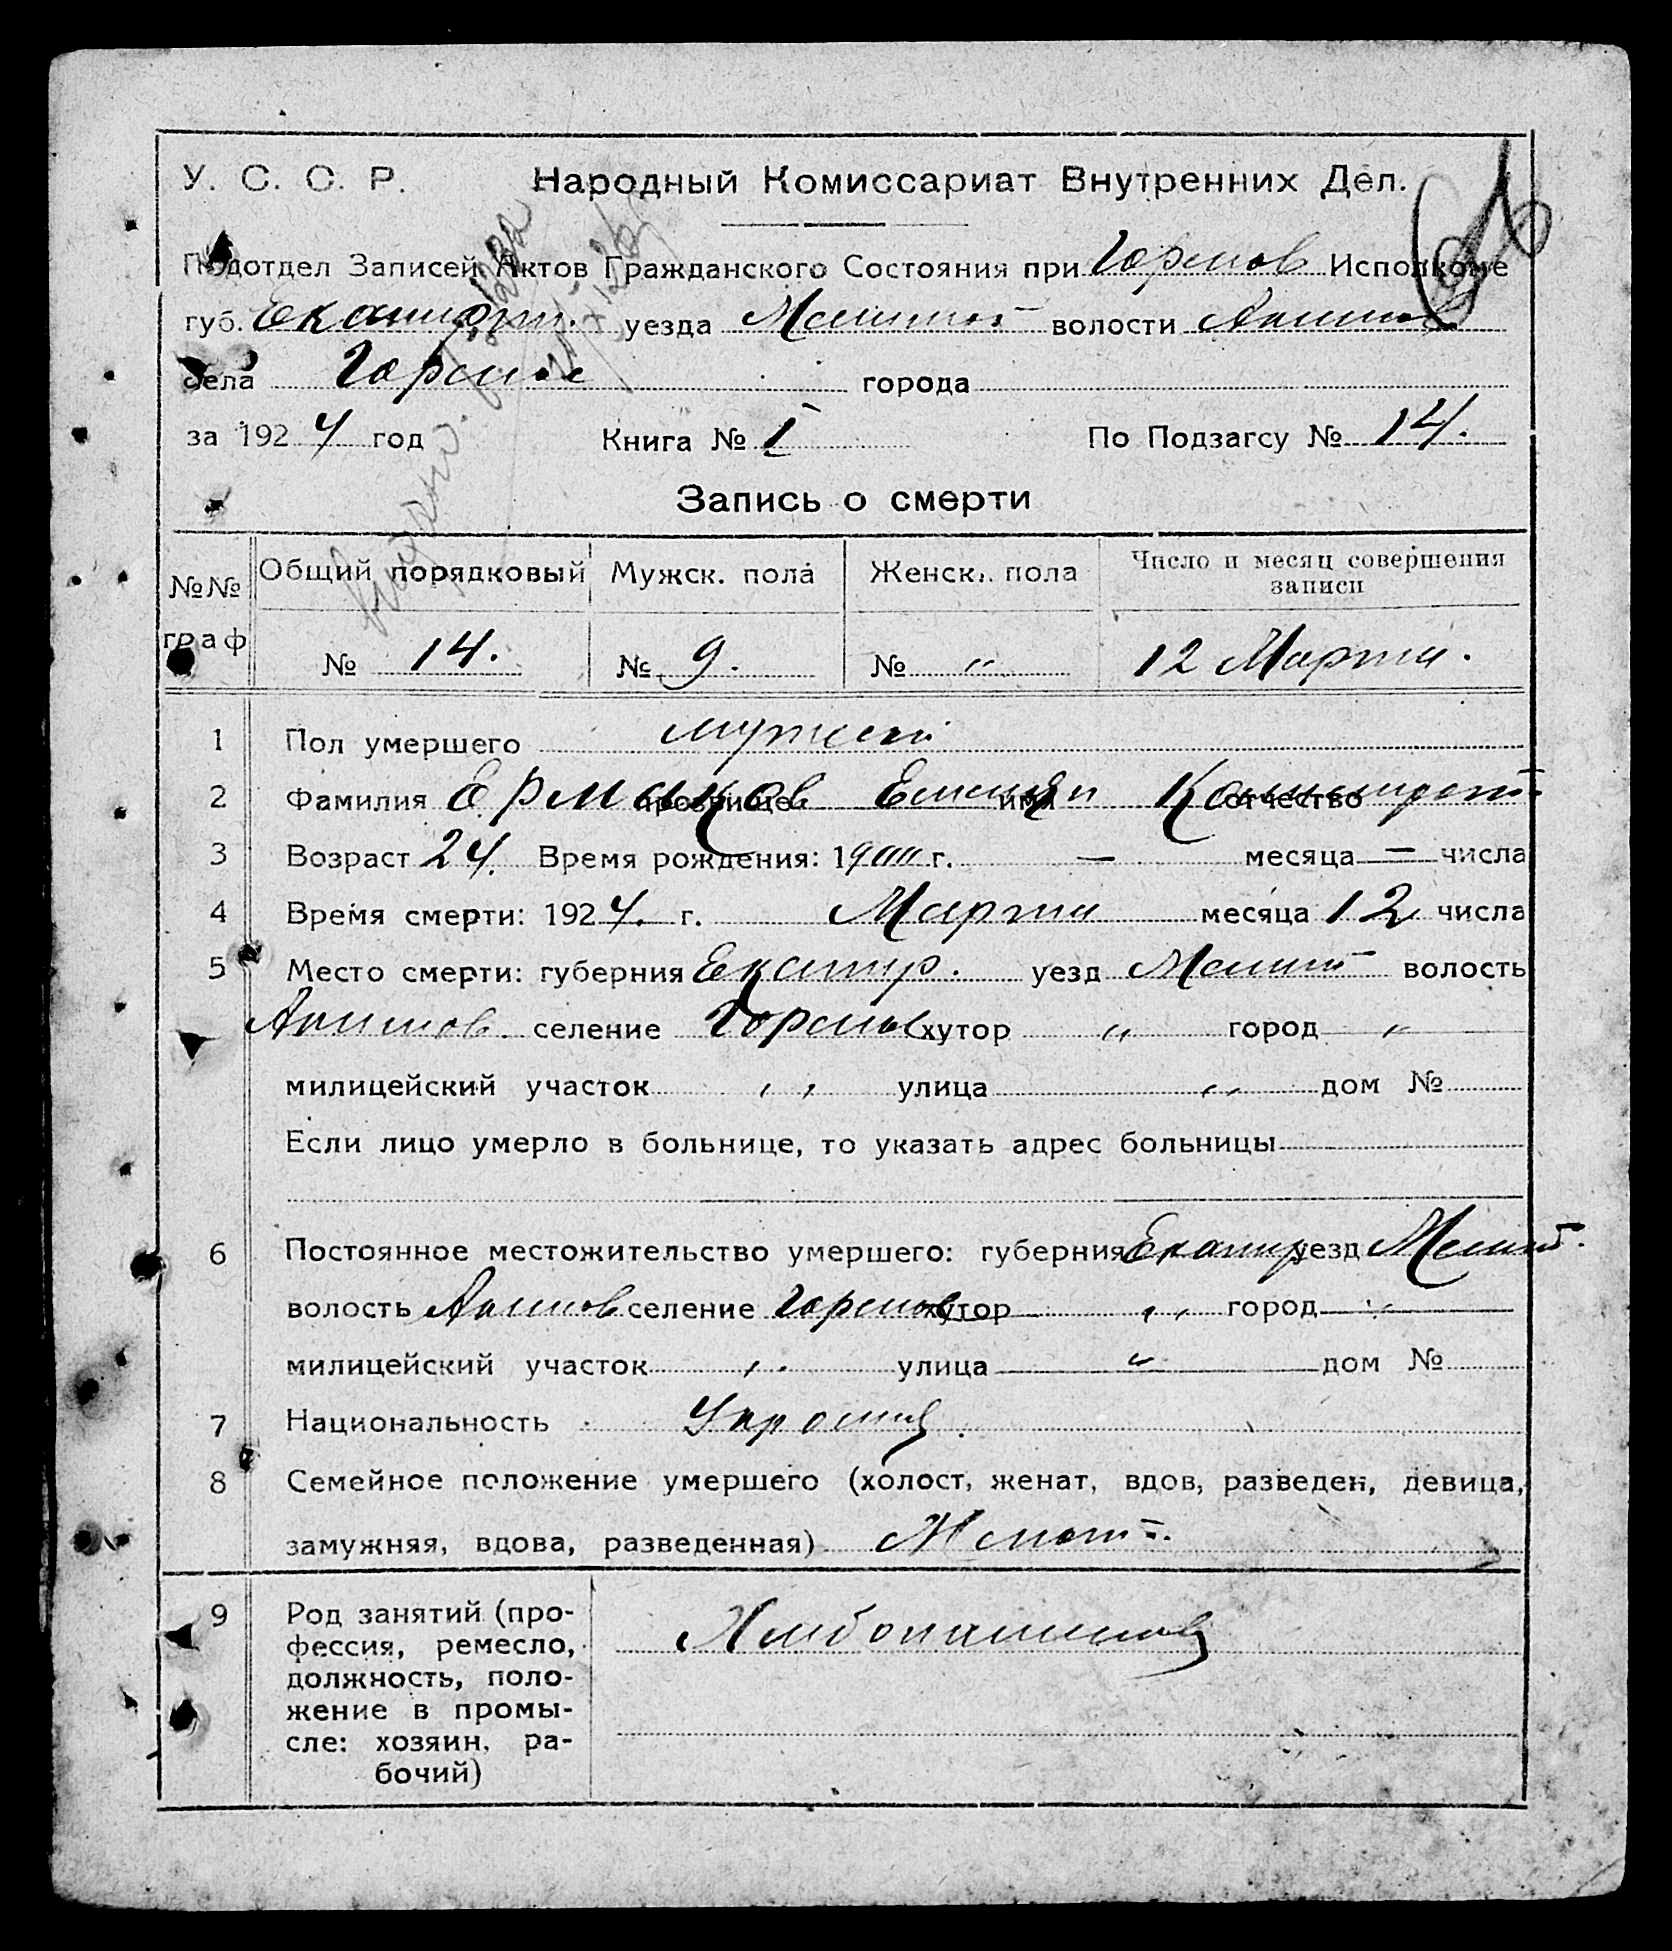 У. С. С. Р. Народный Комиссариат Внутренних Дел.
Подотдел Записей Актов Гражданского Состояния при Исполкоме
губ. уезда Мелитоп волости Акимов
села города
за 1924 год Книга № I По Подзагсу № 14.
Запись о смерти
№№ граф Общий порядковый Мужск. пола Женск. пола Число и месяц совершения записи
№ 14. № 9. № " 12 Марта.
1 Пол умершего мужской
2 Фамилия Ермаков прозвище имя отчество
3 Возраст 24. Время рождения: 1900 г. — месяца — числа
4 Время смерти: 1924. г. Марта месяца 12 числа
5 Место смерти: губерния Екатер. уезд Мелит волость
Акимов. селение хутор " город "
милицейский участок " улица " дом №
Если лицо умерло в больнице, то указать адрес больницы
6 Постоянное местожительство умершего: губерния Екатер уезд Мелит.
волость Акимов селение хутор " город "
милицейский участок " улица " дом №
7 Национальность
8 Семейное положение умершего (холост, женат, вдов, разведен, девица,
замужняя, вдова, разведенная) Женат.
9 Род занятий (про-
фессия, ремесло,
должность, поло-
жение в промы-
сле: хозяин, ра-
бочий)
Хлебопашец